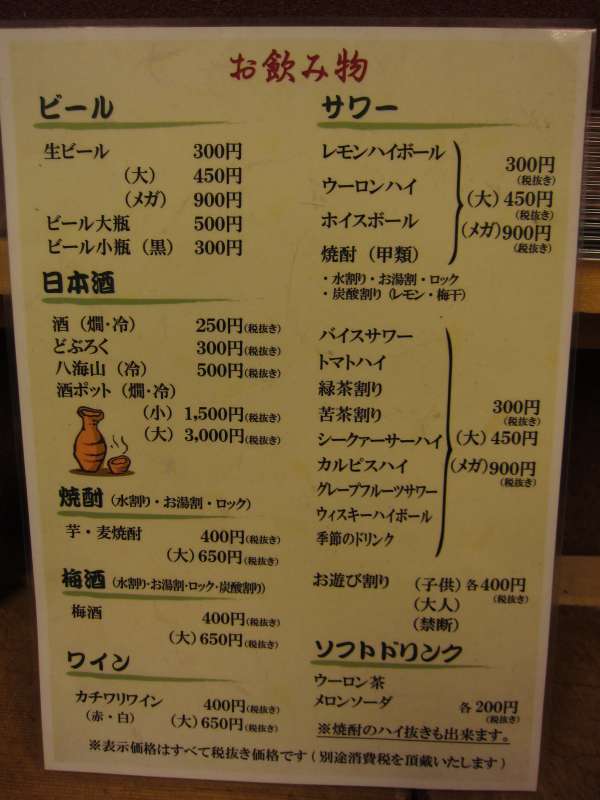 お飲み物
ビール
生ビール 300円
（大） 450円
（メガ） 900円
ビール大瓶 500円
ビール小瓶（黒） 300円
日本酒
酒（燗・冷） 250円(税抜き)
どぶろく 300円(税抜き)
八海山（冷） 500円(税抜き)
酒ポット（燗・冷）
（小）1,500円(税抜き)
（大）3,000円(税抜き)
焼酎（水割り・お湯割・ロック）
芋・麦焼酎 400円(税抜き)
（大）650円(税抜き)
梅酒（水割り・お湯割・ロック・炭酸割り）
梅酒 400円(税抜き)
（大）650円(税抜き)
ワイン
カチワリワイン 400円(税抜き)
（赤・白）（大）650円(税抜き)
サワー
レモンハイボール
ウーロンハイ
ホイスボール
焼酎（甲類）
・水割り・お湯割・ロック
・炭酸割り（レモン・梅干）
300円
(税抜き)
（大）450円
(税抜き)
（メガ）900円
(税抜き)
バイスサワー
トマトハイ
緑茶割り
苦茶割り
シークァーサーハイ
カルピスハイ
グレープフルーツサワー
ウィスキーハイボール
季節のドリンク
300円
(税抜き)
（大）450円
（メガ）900円
(税抜き)
お遊び割り（子供）各400円
(税抜き)
（大人）
（禁断）
ソフトドリンク
ウーロン茶
メロンソーダ 各200円
(税抜き)
※焼酎のハイ抜きも出来ます。
※表示価格はすべて税抜き価格です（別途消費税を頂戴いたします）